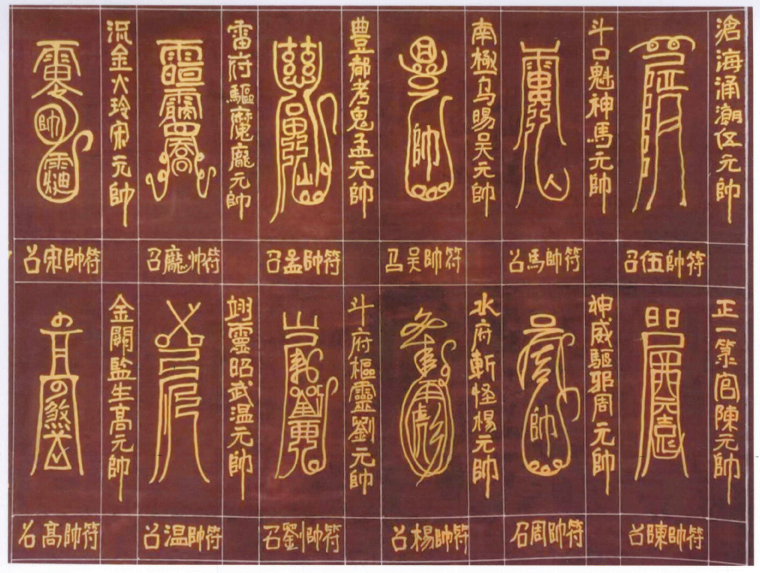 滄海涌潮伍元帥
召伍帥符
斗口魁神馬元帥
召馬帥符
南極烏暘吳元帥
召吳帥符
豊都考鬼孟元帥
召孟帥符
雷府驅魔龐元帥
召龐帅符
金火玲宋元帥
召宋帥符
正一筞官陳元帥
召陳帥符
神威驅邪周元帥
召周帥符
水府斬怪楊元帥
召楊帥符
斗府樞靈劉元帥
召劉帥符
翊靈昭武温元帥
召温帥符
金闕監生髙元帥
召髙帥符